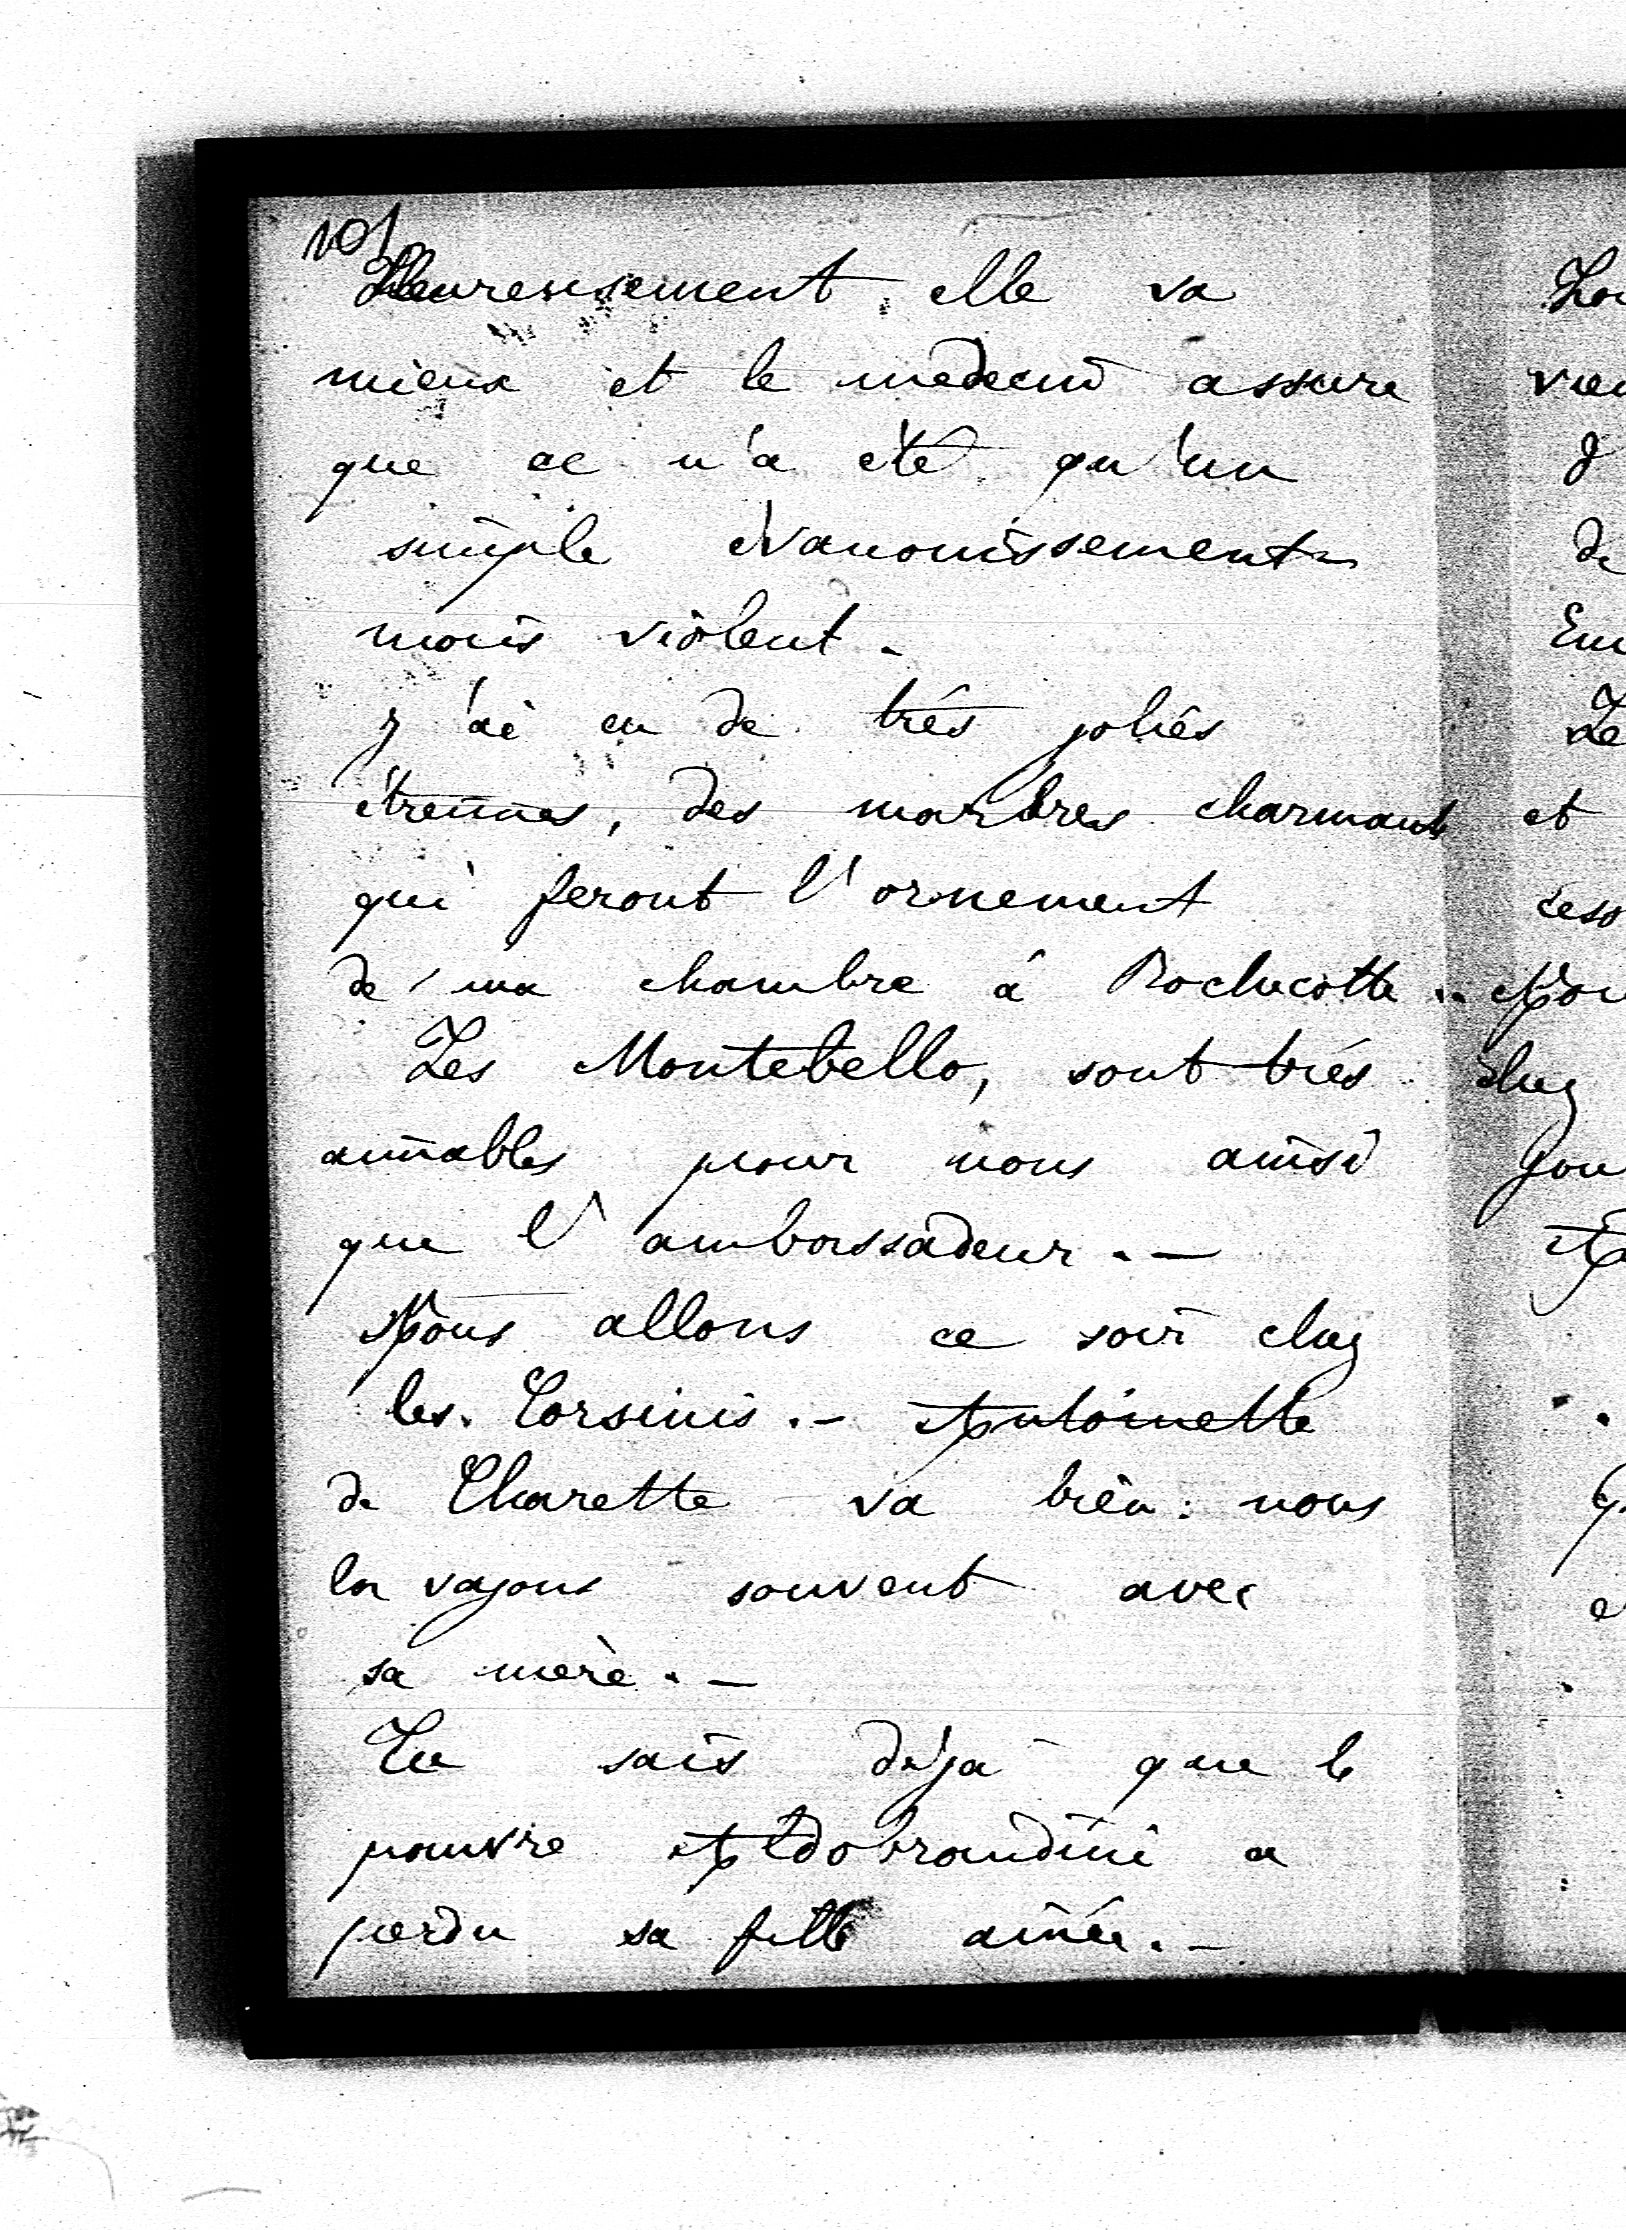 101
Heureusement elle va
mieux et le médecin assure
que ce n'a été qu'un
simple évanouissement
mais violent.
J'ai eu de très jolies
étrennes, des marbres charmants
qui feront l'ornement
de ma chambre à Rochecotte..
Les Montebello, sont très
aimables pour nous ainsi
que l'ambassadeur. —
Nous allons ce soir chez
les Corsinis. - Antoinette
de Charette va bien : nous
la voyons souvent avec
sa mère. —
Tu sais déjà que le
pauvre Aldobrandini a
perdu sa fille ainée. —
et
de
chez